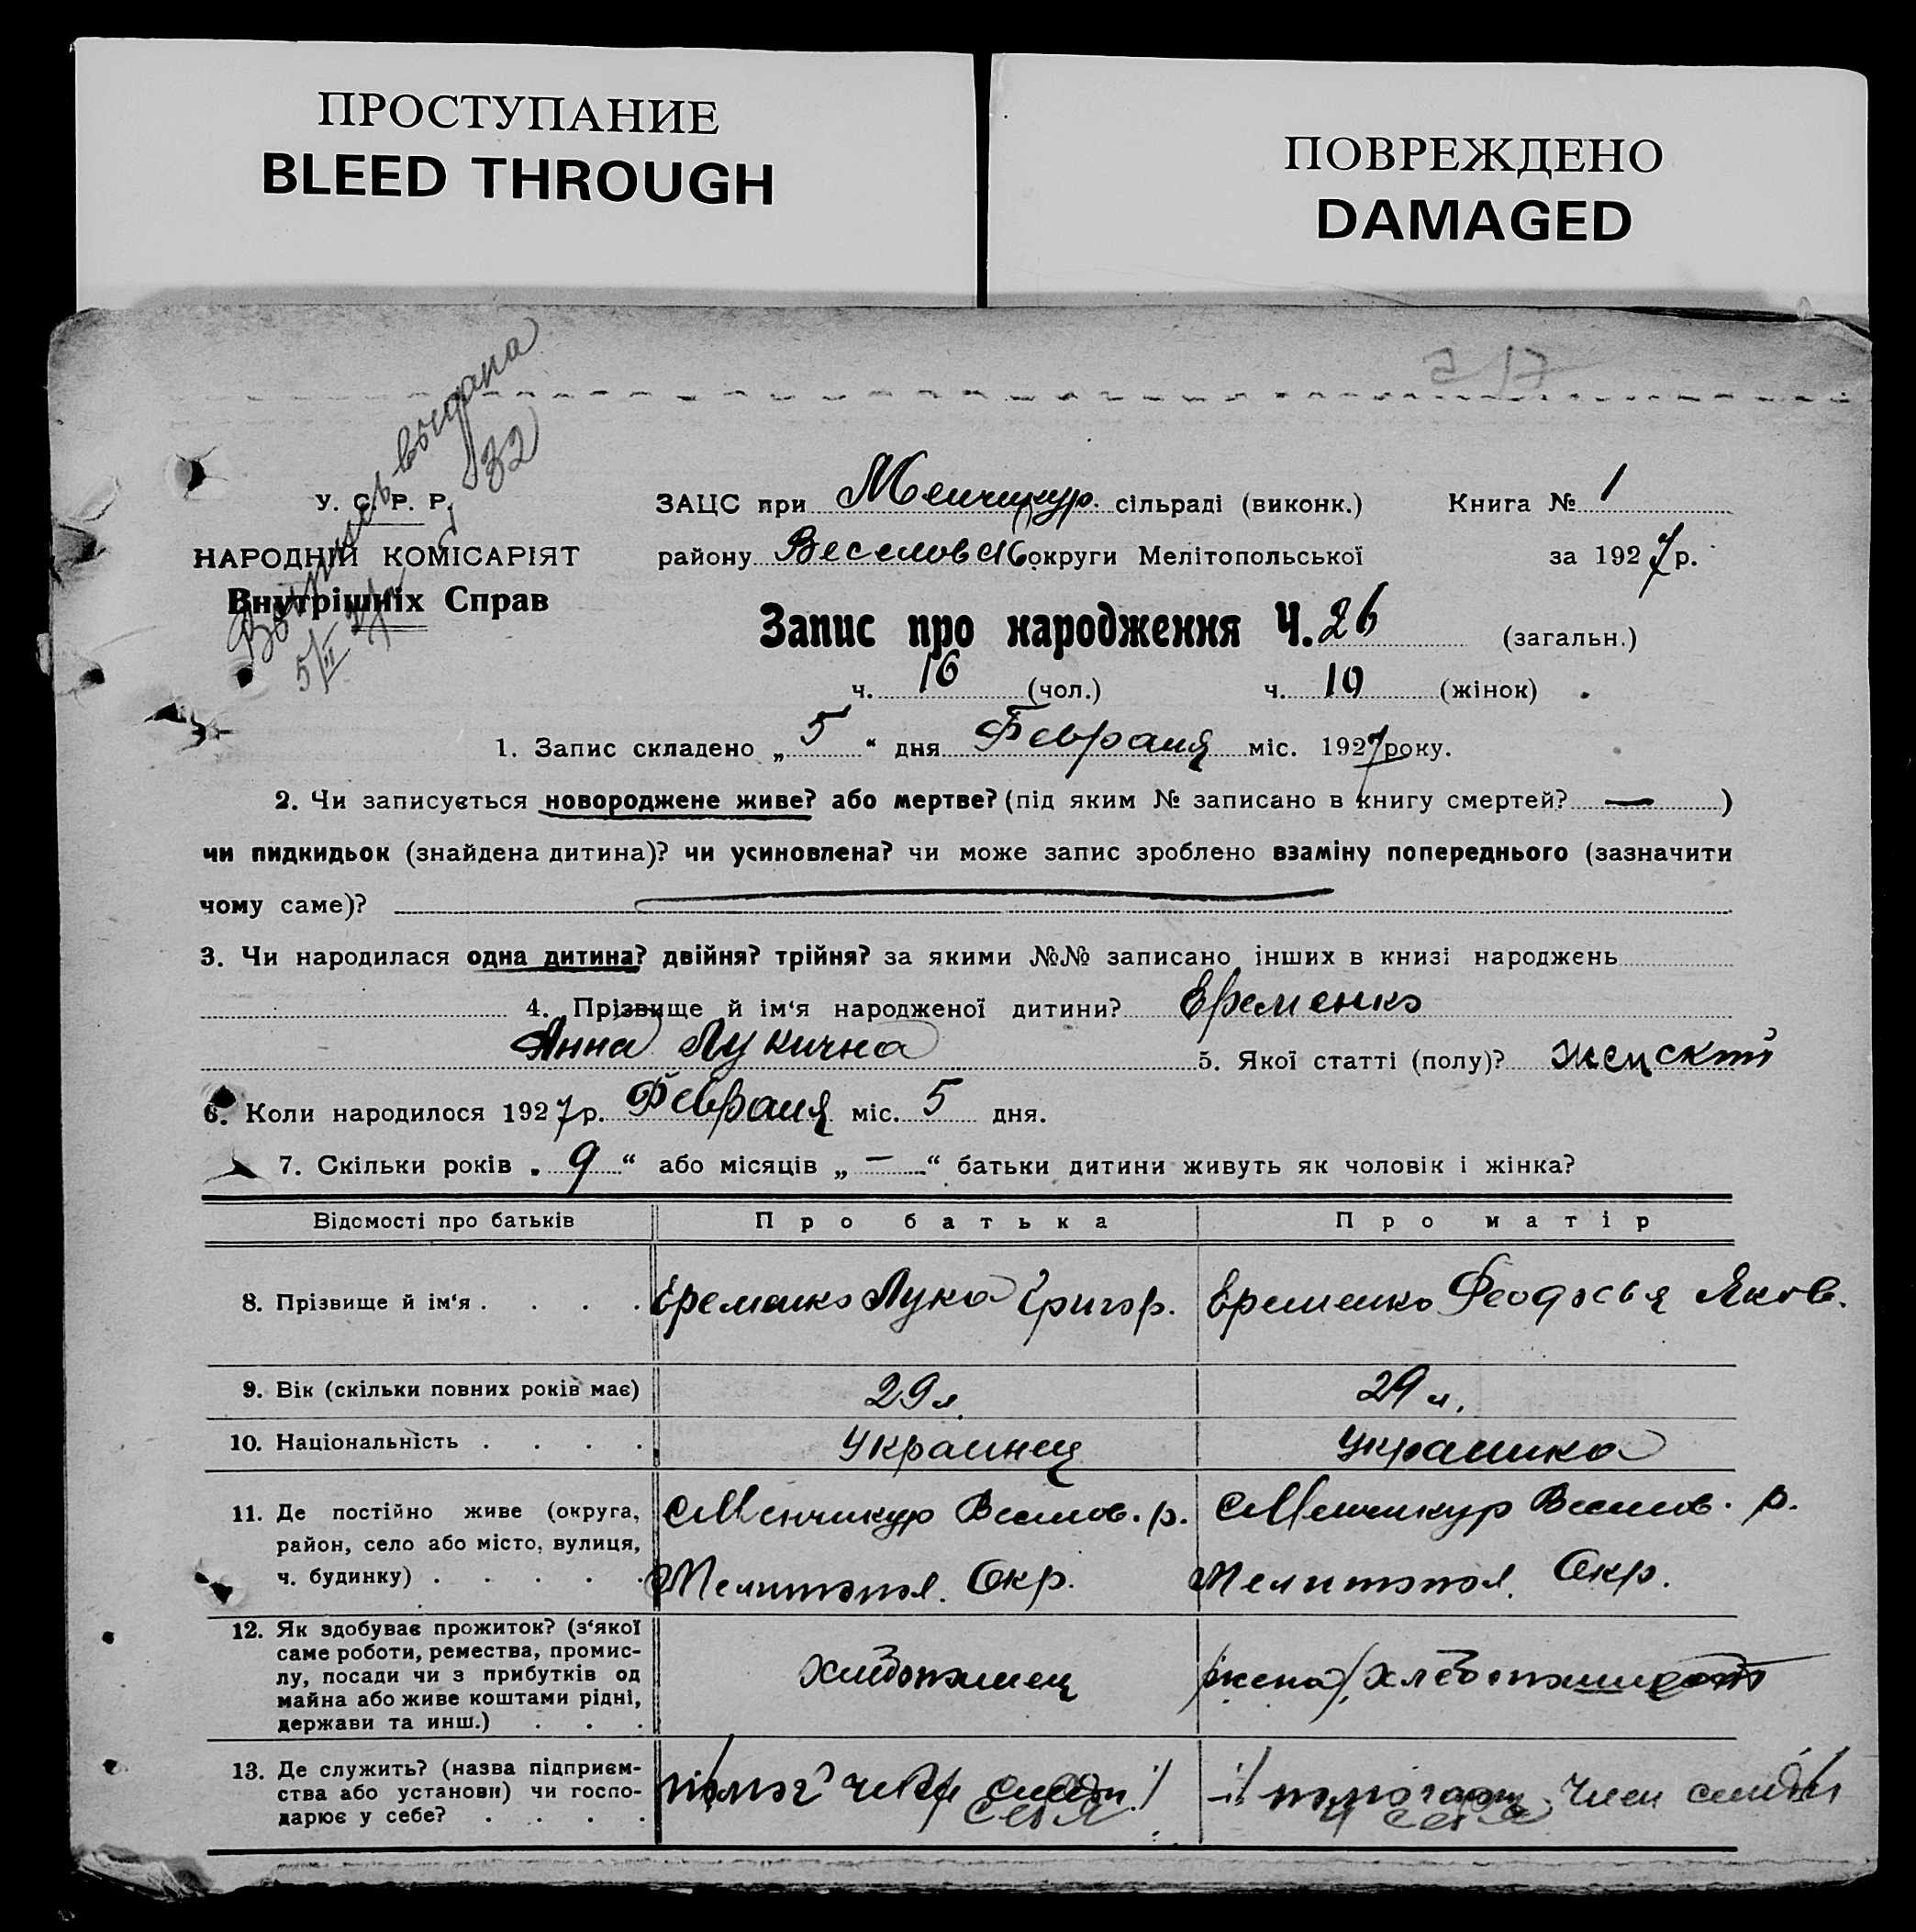 ПРОСТУПАНИЕ
BLEED THROUGH
ПОВРЕЖДЕНО
DAMAGED
выдана
32
У. С. Р. Р.
НАРОДНІЙ КОМІСАРІЯТ
Внутрішніх Справ
5/II
ЗАЦС при Менчикур. сільраді (виконк.) Книга № 1
району Веселовск округи Мелітопольської за 1927 р.
Запис про народження Ч. 26 (загальн.)
ч. 16 (чол.) ч. 10 (жінок)
1. Запис складено „ 5 “ дня Февраля міс. 1927 року.
2. Чи записується новороджене живе? або мертве? (під яким № записано в книгу смертей? — )
чи пидкидьок (знайдена дитина)? чи усиновлена? чи може запис зроблено взаміну попереднього (зазначити
чому саме)?
3. Чи народилася одна дитина? двійня? трійня? за якими №№ записано інших в книзі народжень
4. Прізвище й ім‘я народженої дитини? Еременко
Анна Лукична 5. Якої статті (полу)? женский
6. Коли народилося 1927 р. Февраля міс. 5 дня.
7. Скільки років „ 9 “ або місяців „ — “ батьки дитини живуть як чоловік і жінка?
Відомості про батьків Про батька Про матір
8. Прізвище й ім‘я . . . . Еременко Лука Григор. Еременко Феодосья Яков.
9. Вік (скільки повних років має) 29 л. 29 л.
10. Національність . . . . Украинец Украинка
11. Де постійно живе (округа,
район, село або місто, вулиця,
ч. будинку) . . . . .
с Менчикур Веселов. р.
Мелитопол. Окр.
с Менчикур Веселов. р.
Мелитопол. Окр.
12. Як здобуває прожиток? (з‘якої
саме роботи, ремества, промис-
лу, посади чи з прибутків од
майна або живе коштами рідні,
держави та инш.) . . .
хлебопашец
/жена/
13. Де служить? (назва підприєм-
ства або установи) чи госпо-
дарює у себе? . . . .
себя
помогающ. член семьи
у себя